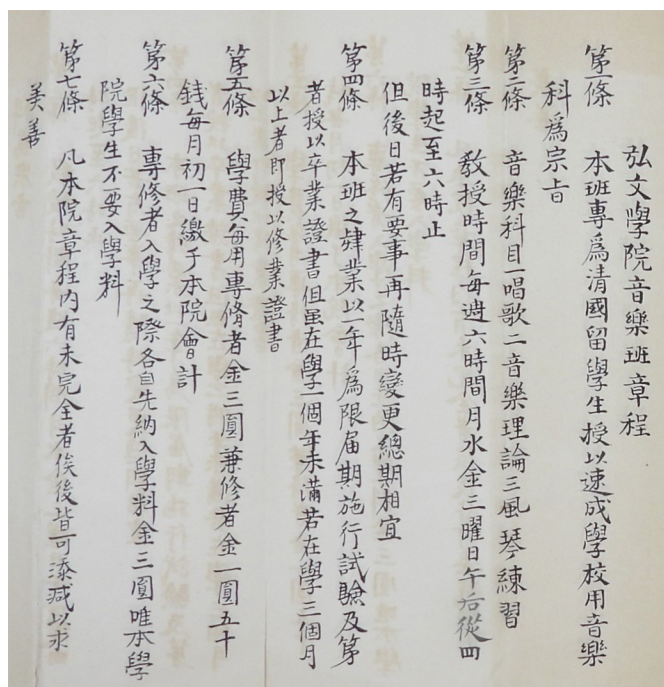 弘文學院音樂班章程
第一條　本班專爲清國留學生授以速成學校用音樂
科爲宗旨
第二條　音樂科目一唱歌二音樂理論三風琴練習
第三條　敎授時間每週六時間月水金三曜日午后從四
時起至六時止
但後日若有要事再隨時變更總期相宜
第四條　本班之肄業以一年爲限届期施行試驗及第
者授以卒業證書但虽在學一個年未滿若在學三個月
以上者即授以修業證書
第五條　學費每月專脩者金三圓兼修者金一圓五十
錢每月初一日繳于本院會計
第六條　專修者入學之際各自先納入學料金三圓唯本學
院學生不要入學料
第七條　凡本院章程内有未完全者俟後皆可添减以求
美善